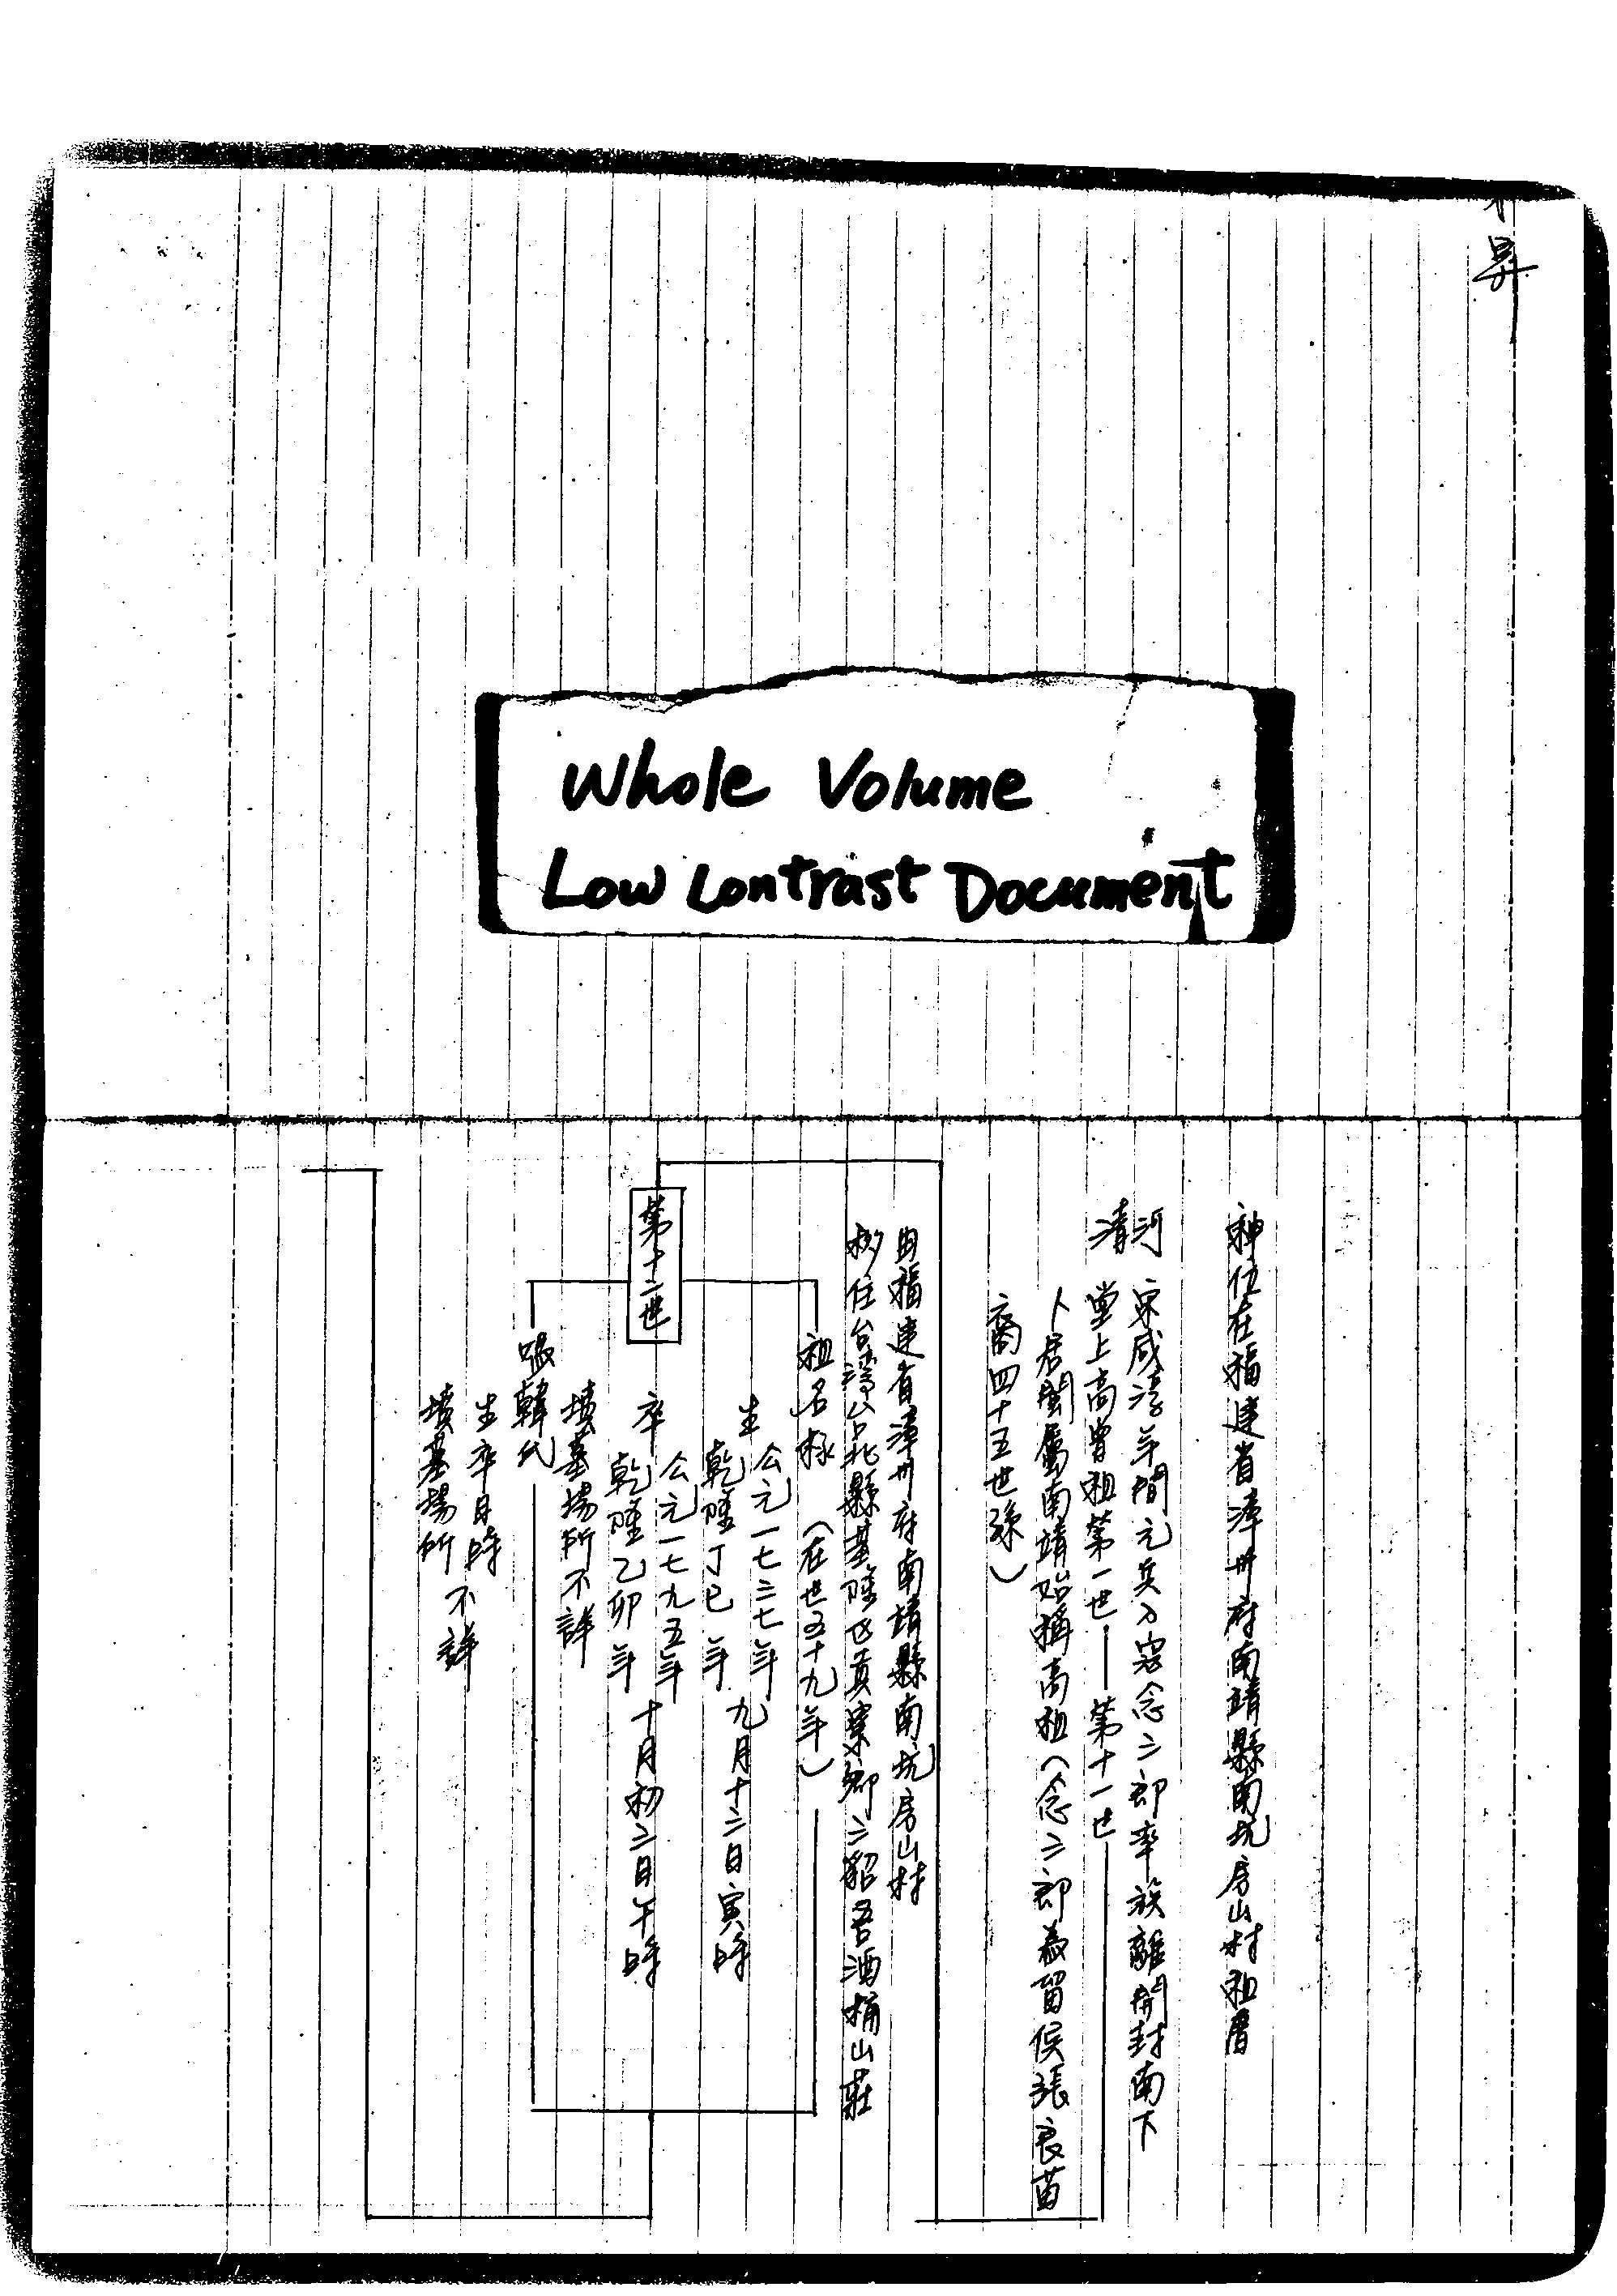 昇
Whole Volume
Low Contrast Document
神位在福建省漳州府南靖縣南坑房山村祖厝
宋咸淳年間元兵入寇念二郎率族離開封南下
清河
堂上高曾祖第一世——第十一世
卜居閩屬南靖始稱高祖(念二郎為留侯張良苗
裔四十五世孫)
由福建省漳州府南靖縣南坑房山村
移住台灣台北縣基隆區貢寮鄉三貂吾酒桶山莊
第十二世
祖名 (在世五十九年)
生 公元一七三七年 乾隆丁巳年 九月十三日寅時
卒 公元一七九五年 乾隆乙卯年 十月初三日午時
墳墓場所不詳
張韓氏
生卒日時 不詳
墳墓場所